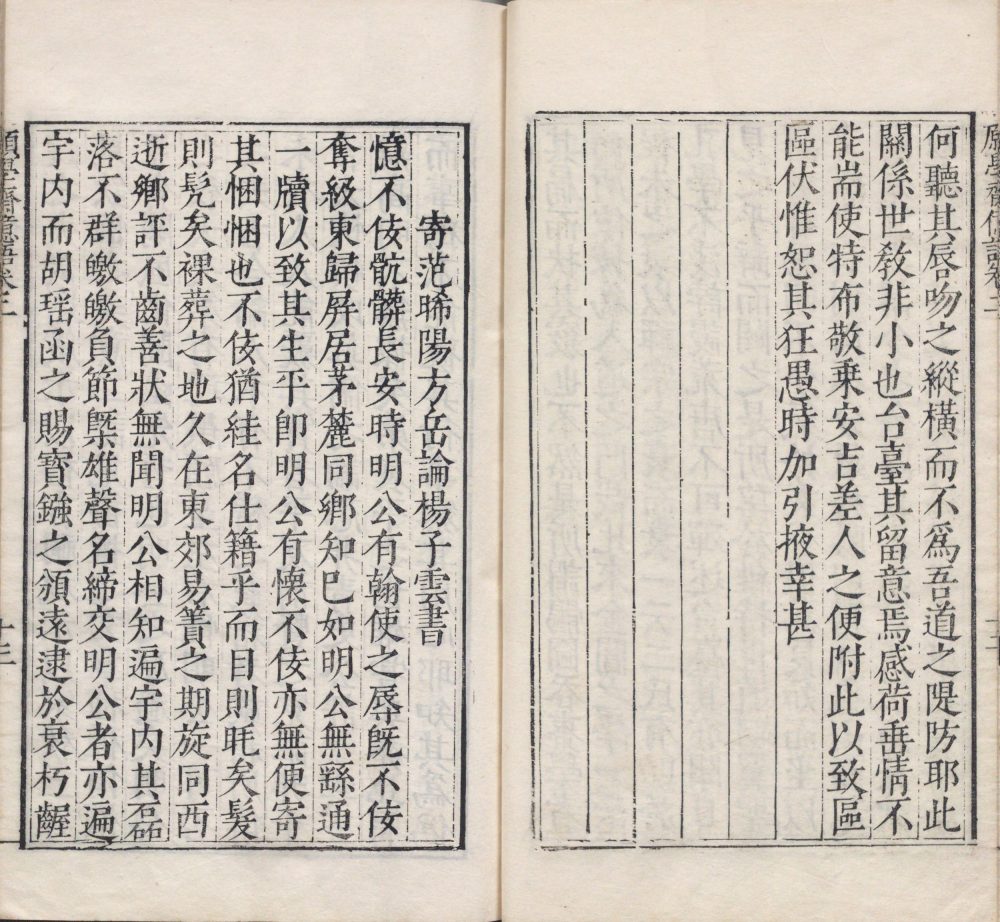 何聽其唇吻之縱橫而不爲吾道之隄防耶此
關係世敎非小也台臺其留意焉感荷垂情不
能耑使特布敬乘安吉差人之便附此以致區
區伏惟恕其狂愚時加引掖幸甚
寄范晞陽方岳論楊子雲書
憶不佞骯髒長安時明公有翰使之辱旣不佞
奪級東歸屛居茅麓同鄉知巳如明公無繇通
一牘以致其生平卽明公有懷不佞亦無便寄
其悃悃也不佞猶絓名仕籍乎而目則眊矣髮
則髡矣裸葬之地久在東郊易簀之期旋同西
逝鄉評不齒善狀無聞明公相知遍宇內其磊砢
落不群皦皦負節槩雄聲名締交明公者亦遍
宇內而胡瑶函之賜寶鏹之頒遠逮於衰朽齷
願學齋億語卷三
十三